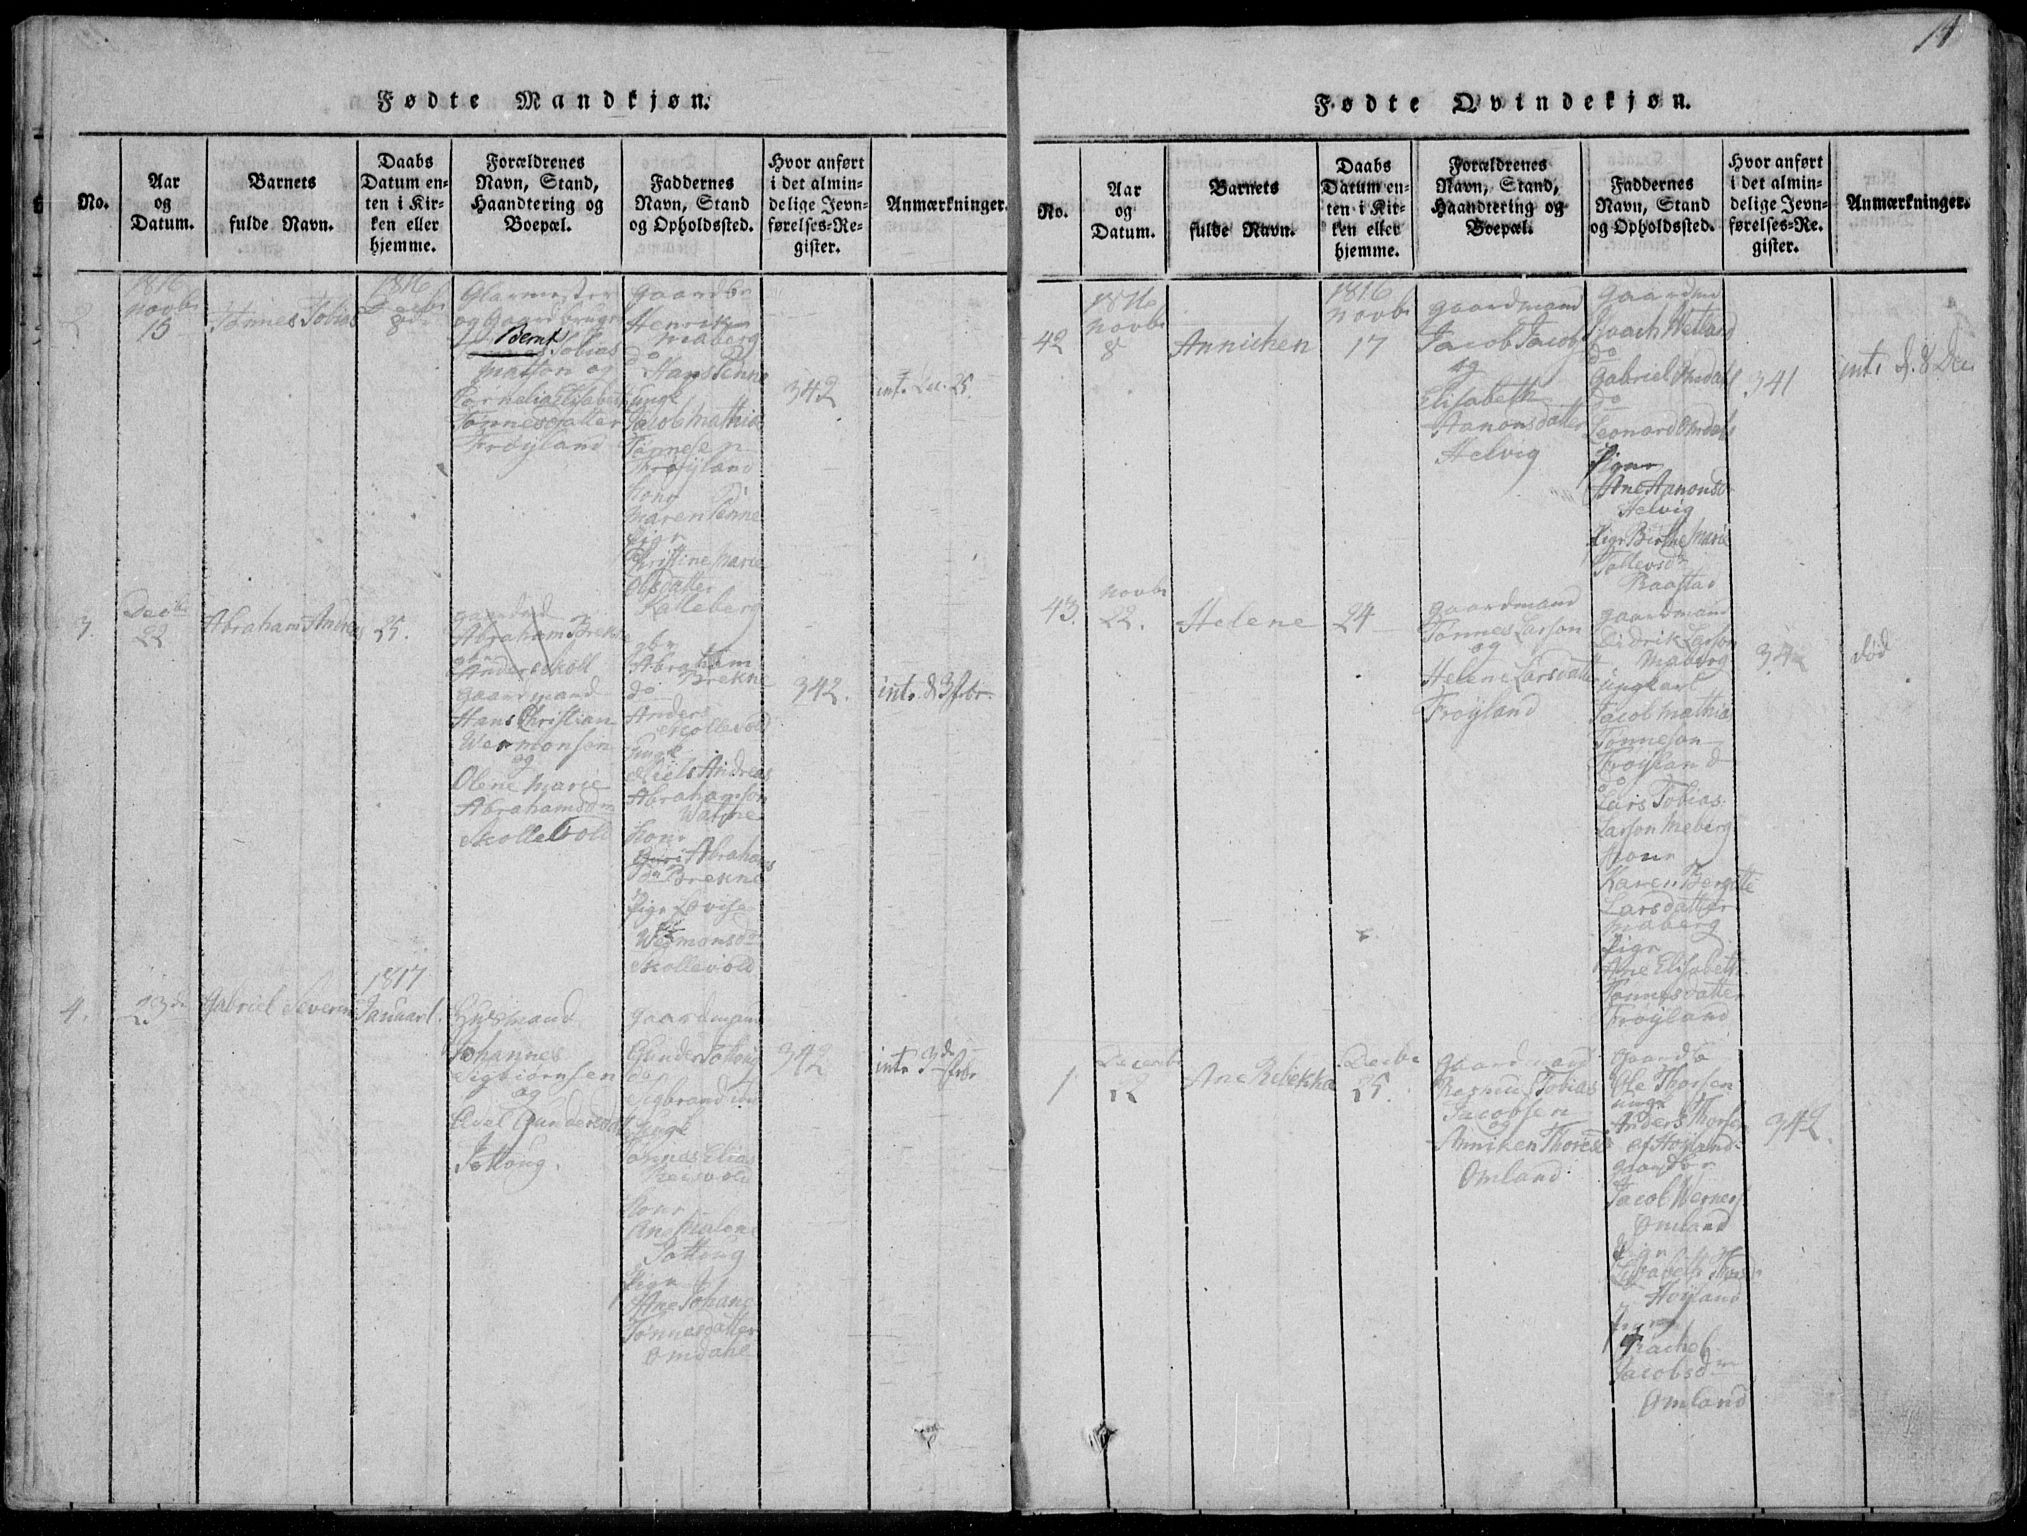 14
Fødte Mandkjøn.
No.
Aar
og
Datum.
Barnets
fulde Navn.
Daabs
Datum en-
ten i Kir-
ken eller
hjemme.
Forældrenes
Navn, Stand,
Haandtering og
Boepæl.
Faddernes
Navn, Stand
og Opholdssted.
Hvor anført
i det almin-
delige Jevn-
førelses-Re-
gister.
Anmærkninger.
2
1816
Novbr
15
Tønnes Tobias
1816
Decbr
8de
Glarmester
og Gaardbruger
Bernt
Tobias
og
Cornelia Elisabeth
Tønnesdatter
Frøyland
Gaardbr
Henrik
Maberg
do
Hans Tenne
Ungk
Jacob Mathias
Tønnesen
Frøyland
Kone
Maren Tenne
Pige
Christine Marie
Olsdatter
Kalleberg
342
int. Dec. 25
3.
Decbr
22
Abraham Andreas
25.
Abraham Brekne
gaardmand
Hans Christian
Wermonsen
og
Olene Marie
Abrahamsd
Skollevold
gbr
Abraham
Brekne
do
Anders
Skollevold
Ungk
Niels Andreas
Abrahamson
Watne
Kone
Abrahams
Brekne
Pige Lovise
Wermonsd
Skollevold
342.
int. d 3 Febr.
4.
23de
Gabriel Severin
1817
Januar 1.
Husmand
Johannes
Sigbiørnsen
og
Axel Gundersdatt
Jottong.
gaardmand
Gunder Jottong
do
Sigbrand
Ungk
Tønnes Elias
Kone
Ane Malene
Jottong
Pige
Ane Johane
Tønnesdatter
Omdahl
342
int. 3de Febr
Fødte Qvindekjøn.
No.
Aar
og
Datum.
Barnets
fulde Navn.
Daabs
Datum en-
ten i Kir-
ken eller
hjemme.
Forældrenes
Navn, Stand,
Haandtering og
Boepæl.
Faddernes
Navn, Stand
og Opholdssted.
Hvor anført
i det almin-
delige Jevn-
førelses-Re-
gister.
Anmærkninger.
42
1816
Novbr
8
Annichen
1816
Novbr
17
gaardmand
Jacob Jacobs
og
Elisabeth
Aanonsdatter
Helvig
Gaardm
do
Gabriel Omdal
do
Leonard Omdahl
Pige
Ane Aanonsd
Helvig
Pige Birthe Marie
Tollevsd
Raastad
341
int. d. 8 Dec.
43.
Novbr
22.
Helene
24
gaardmand
Tønnes Larson
og
Helene Larsdatter
Frøyland
gaardmand
Didrik Larson
Maberg
ungkarl
Jacob Mathias
Tønneson
Frøyland
do
Lars Tobias
Larson Meberg
Kone
Karen Bergitte
Larsdatter
Maberg
Pige
Ane Elisabeth
Tønnesdatter
Frøyland
342
død
1
Decembr
12
Ane Rebekka
Decbr
25.
gaardmand
Rasmus Tobias
Jacobsen
og
Anniken Thoresd
Omland
Ole Thorsen
ungk
Anders Thorsen
af Høyland
gaardbr
Jacob Werners
Omland
Pige
Høyland
Rachel
Jacobsd
Omland
342.